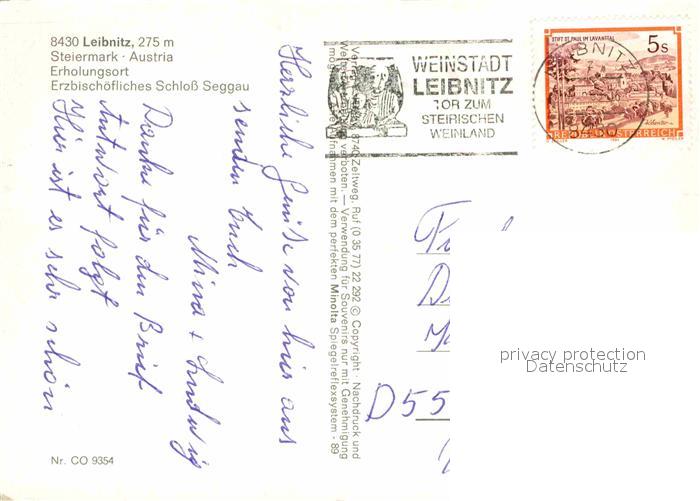 8430 Leibnitz, 275 m
Steiermark · Austria
Erholungsort
Erzbischöfliches Schloß Seggau
Herzliche Grüße von hier aus
senden Euch
Mina + Ludwig
Danke für den Brief
Antwort folgt
Hier ist es sehr schön
Nr. CO 9354
8740 Zeltweg, Ruf (0 35 77) 22 292 © Copyright · Nachdruck und
verboten. — Verwendung für Souvenirs nur mit Genehmigung
aufnahmen mit dem perfekten Minolta Spiegelreflexsystem - 89
WEINSTADT
LEIBNITZ
TOR ZUM
STEIRISCHEN
WEINLAND
STIFT ST. PAUL IM LAVANTTAL
5 S
REPUBLIK ÖSTERREICH
LEIBNITZ
8430
D 55
privacy protection
Datenschutz